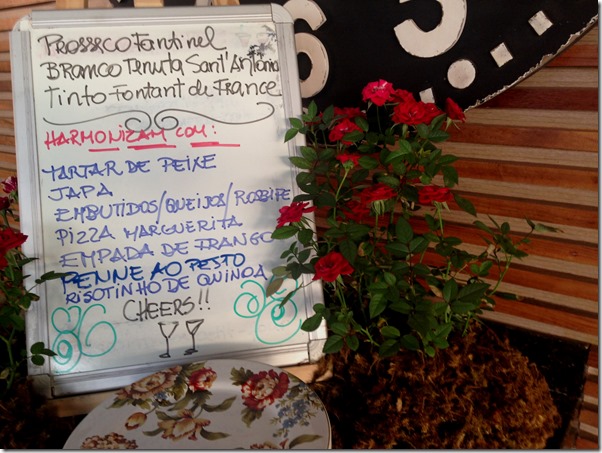 Prossêco Fantinel
Branco Tenuta Sant'Antonio
Tinto Fontant de France
HARMONIZAM COM:
TARTAR DE PEIXE
JAPA
EMBUTIDOS/QUEIJOS/ROSBIFE
PIZZA MARGUERITA
EMPADA DE FRANGO
PENNE AO PESTO
RISOTINHO DE QUINOA
CHEERS!!
6 5